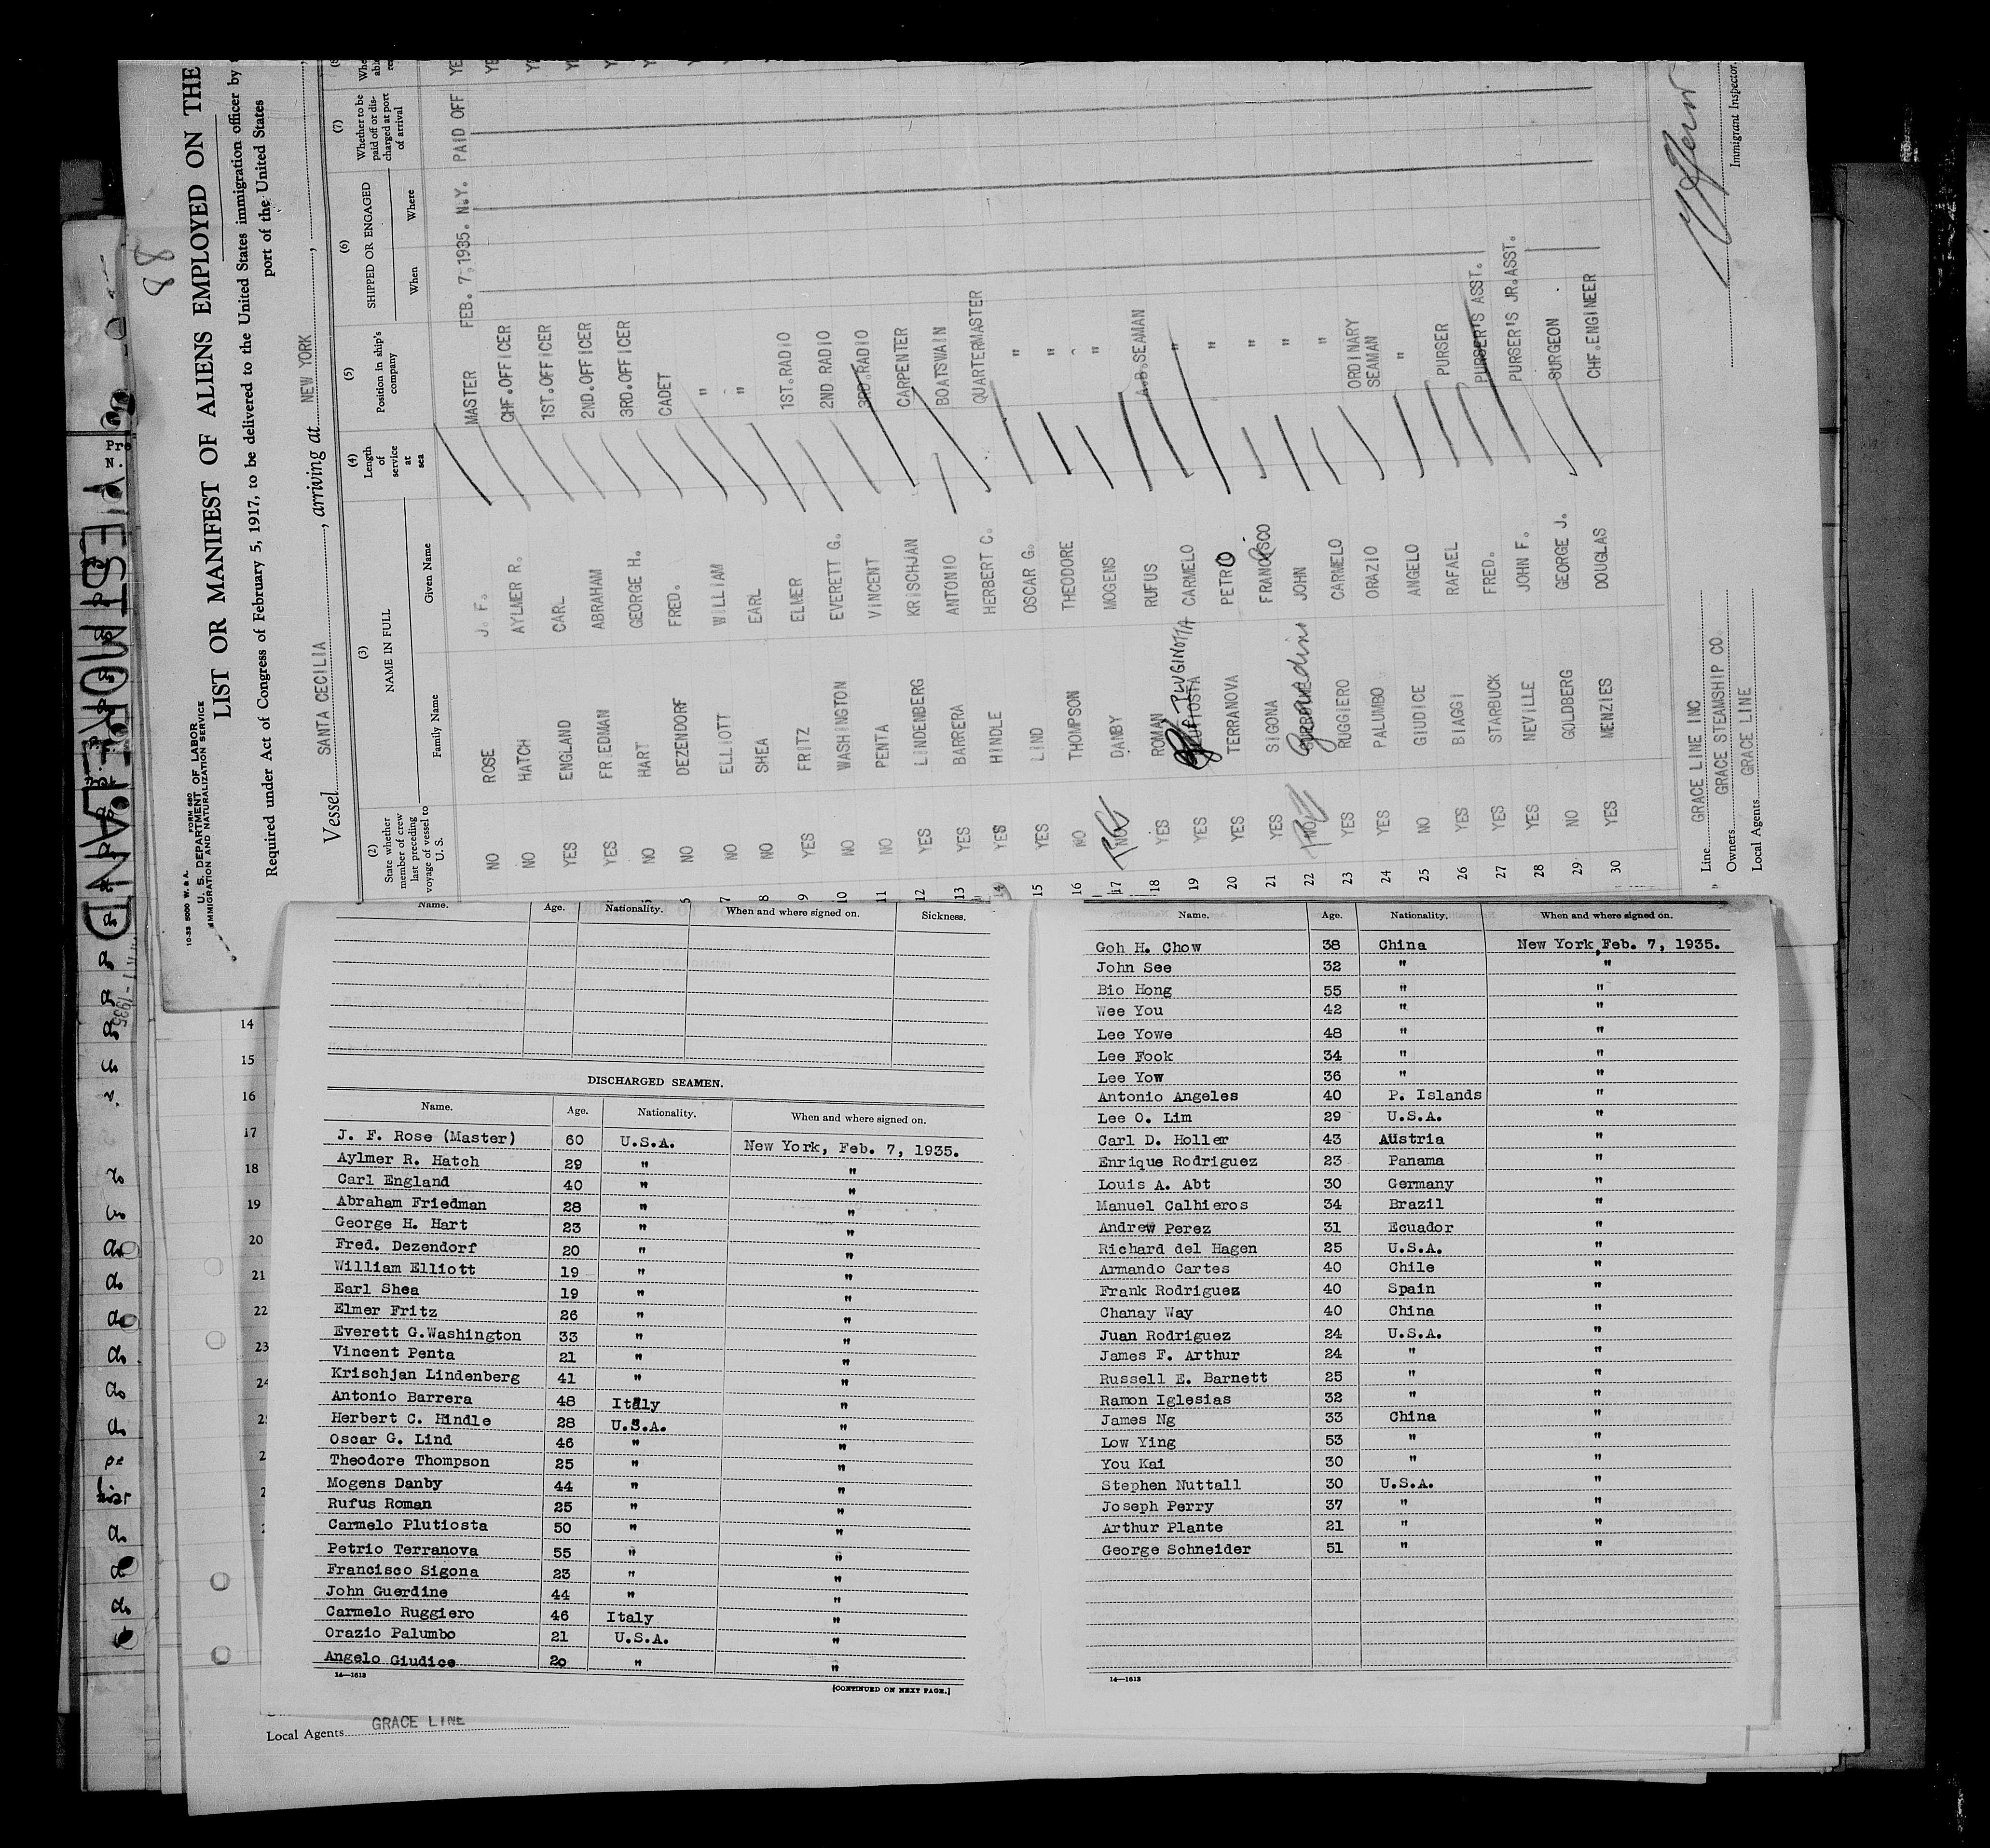 88
10-33 5000 W. & A. FORM 680
U. S. DEPARTMENT OF LABOR
IMMIGRATION AND NATURALIZATION SERVICE
LIST OR MANIFEST OF ALIENS EMPLOYED ON THE
Required under Act of Congress of February 5, 1917, to be delivered to the United States immigration officer by
port of the United States
Vessel SANTA CECILIA, arriving at NEW YORK,
(2) State whether member of crew last preceding voyage of vessel to U. S.
(3) NAME IN FULL
Family Name Given Name
(4) Length of service at sea
(5) Position in ship's company
(6) SHIPPED OR ENGAGED
When Where
(7) Whether to be paid off or discharged at port of arrival
NO ROSE J. F. MASTER FEB. 7, 1935. N.Y. PAID OFF YE
NO HATCH AYLMER R. CHF.OFFICER
YES ENGLAND CARL 1ST.OFFICER
YES FRIEDMAN ABRAHAM 2ND.OFFICER
NO HART GEORGE H. 3RD.OFFICER
NO DEZENDORF FRED. CADET
7 NO ELLIOTT WILLIAM "
8 NO SHEA EARL "
9 YES FRITZ ELMER 1ST.RADIO
10 NO WASHINGTON EVERETT G. 2ND RADIO
11 NO PENTA VINCENT 3RD.RADIO
12 YES LINDENBERG KRISCHJAN CARPENTER
13 YES BARRERA ANTONIO BOATSWAIN
14 YES HINDLE HERBERT C. QUARTERMASTER
15 YES LIND OSCAR G. "
16 NO THOMPSON THEODORE "
17 NO DANBY MOGENS "
18 YES ROMAN RUFUS A.B.SEAMAN
19 YES CARMELO "
20 YES TERRANOVA PETRO "
21 YES SIGONA FRANCISCO "
22 NO JOHN "
23 YES RUGGIERO CARMELO "
24 YES PALUMBO ORAZIO ORDINARY SEAMAN
25 NO GIUDICE ANGELO "
26 YES BIAGGI RAFAEL PURSER
27 YES STARBUCK FRED. PURSER'S ASST.
28 YES NEVILLE JOHN F. PURSER'S JR.ASST.
29 NO GOLDBERG GEORGE J. SURGEON
30 YES MENZIES DOUGLAS CHF.ENGINEER
Line GRACE LINE INC
Owners GRACE STEAMSHIP CO
Local Agents GRACE LINE
Immigrant Inspector.
Name. Age. Nationality. When and where signed on. Sickness.
DISCHARGED SEAMEN.
Name. Age. Nationality. When and where signed on.
J. F. Rose (Master) 60 U.S.A. New York, Feb. 7, 1935.
Aylmer R. Hatch 29 " "
Carl England 40 " "
Abraham Friedman 28 " "
George H. Hart 23 " "
Fred. Dezendorf 20 " "
William Elliott 19 " "
Earl Shea 19 " "
Elmer Fritz 26 " "
Everett G.Washington 33 " "
Vincent Penta 21 " "
Krischjan Lindenberg 41 " "
Antonio Barrera 48 Italy "
Herbert C. Hindle 28 U.S.A. "
Oscar G. Lind 46 " "
Theodore Thompson 25 " "
Mogens Danby 44 " "
Rufus Roman 25 " "
Carmelo Plutiosta 50 " "
Petrio Terranova 55 " "
Francisco Sigona 23 " "
John Guerdine 44 " "
Carmelo Ruggiero 46 Italy "
Orazio Palumbo 21 U.S.A. "
Angelo Giudice 20 " "
14—1613
[CONTINUED ON NEXT PAGE.]
Name. Age. Nationality. When and where signed on.
Goh H. Chow 38 China New York, Feb. 7, 1935.
John See 32 " "
Bio Hong 55 " "
Wee You 42 " "
Lee Yowe 48 " "
Lee Fook 34 " "
Lee Yow 36 " "
Antonio Angeles 40 P. Islands "
Lee O. Lim 29 U.S.A. "
Carl D. Holler 43 Austria "
Enrique Rodriguez 23 Panama "
Louis A. Abt 30 Germany "
Manuel Calhieros 34 Brazil "
Andrew Perez 31 Ecuador "
Richard del Hagen 25 U.S.A. "
Armando Cartes 40 Chile "
Frank Rodriguez 40 Spain "
Chanay Way 40 China "
Juan Rodriguez 24 U.S.A. "
James F. Arthur 24 " "
Russell E. Barnett 25 " "
Ramon Iglesias 32 " "
James Ng 33 China "
Low Ying 53 " "
You Kai 30 " "
Stephen Nuttall 30 U.S.A. "
Joseph Perry 37 " "
Arthur Plante 21 " "
George Schneider 51 " "
14—1613
14
15
16
17
18
19
20
21
22
23
24
Local Agents GRACE LINE